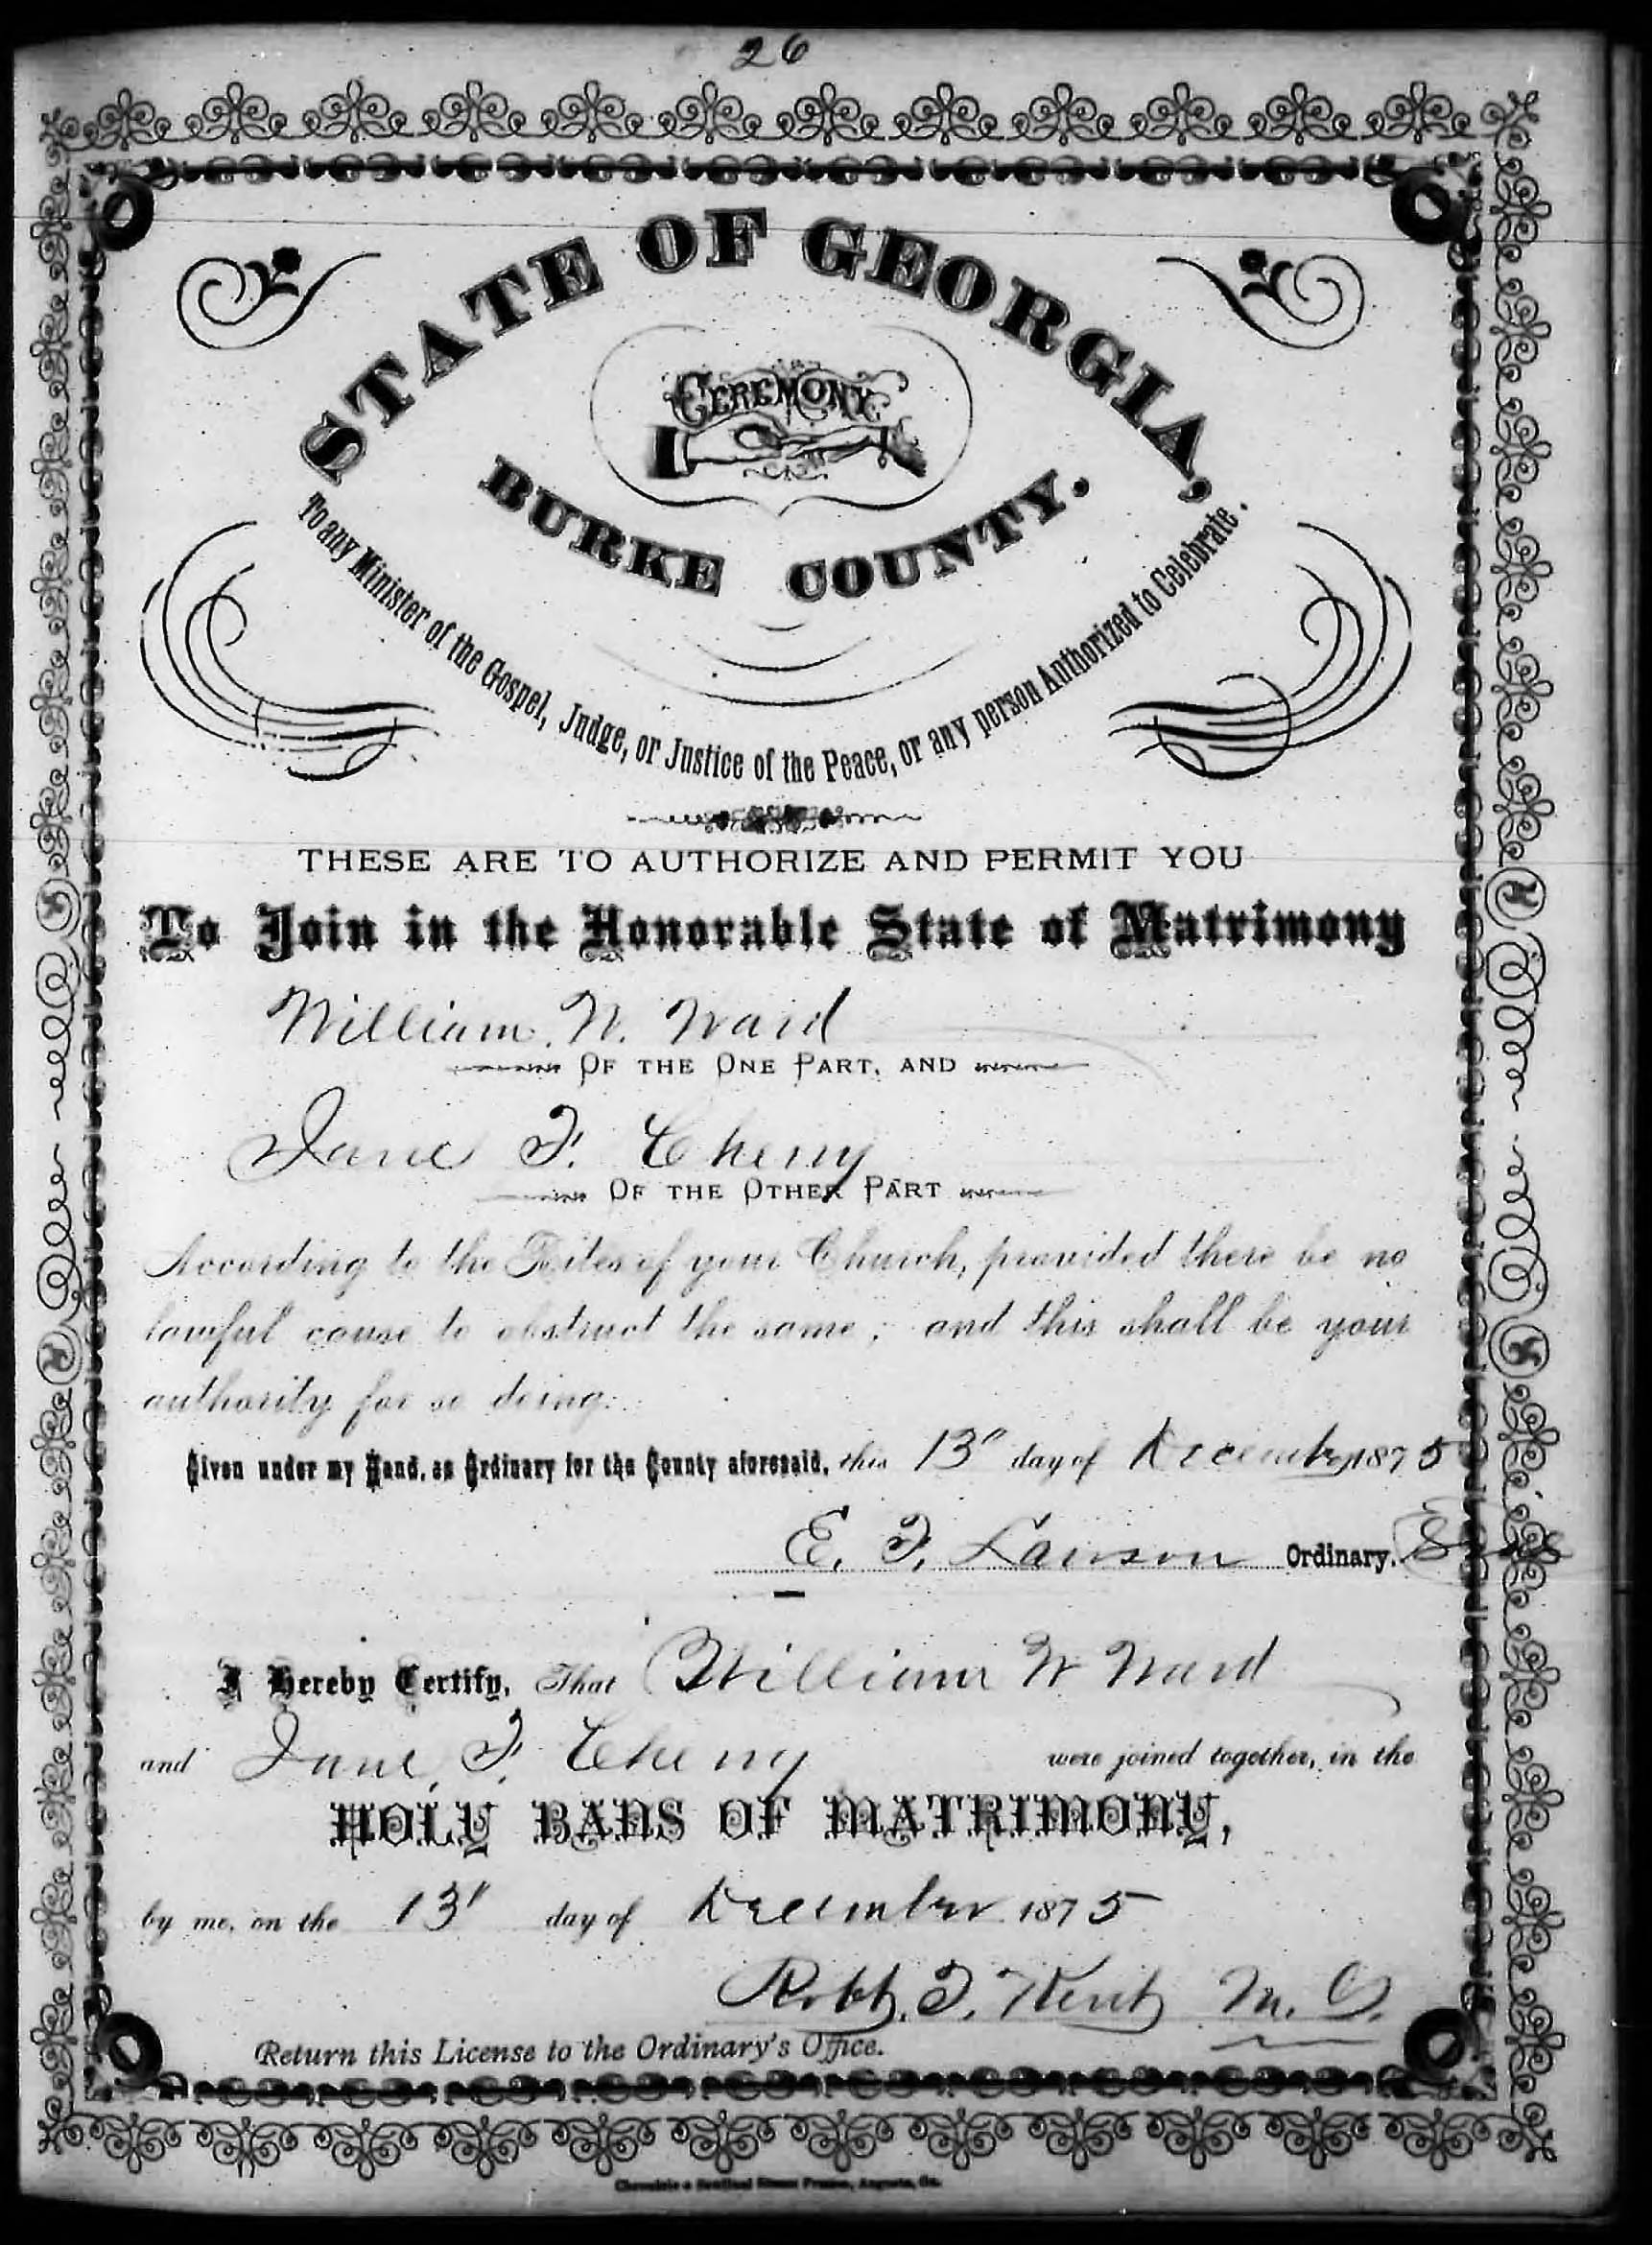 26
STATE OF GEORGIA,
CEREMONY
BURKE COUNTY.
To any Minister of the Gospel, Judge, or Justice of the Peace, or any person Authorized to Celebrate.
THESE ARE TO AUTHORIZE AND PERMIT YOU
To Join in the Honorable State of Matrimony
William. W. Ward
OF THE ONE PART, AND
Jane F. Cheny
OF THE OTHER PART
According to the Rites of your Church, provided there be no
lawful cause to obstruct the same; and this shall be your
authority for so doing.
Given under my Hand, as Ordinary for the County aforesaid, this 13" day of December 1875
E. F. Lawson Ordinary.
I Hereby Certify, That William W Ward
and Jane. F. Cheny were joined together, in the
HOLY BANS OF MATRIMONY,
by me, on the 13" day of December 1875
Robt. F. Kent M. G.
Return this License to the Ordinary's Office.
Chronicle & Sentinel Steam Presses, Augusta, Ga.